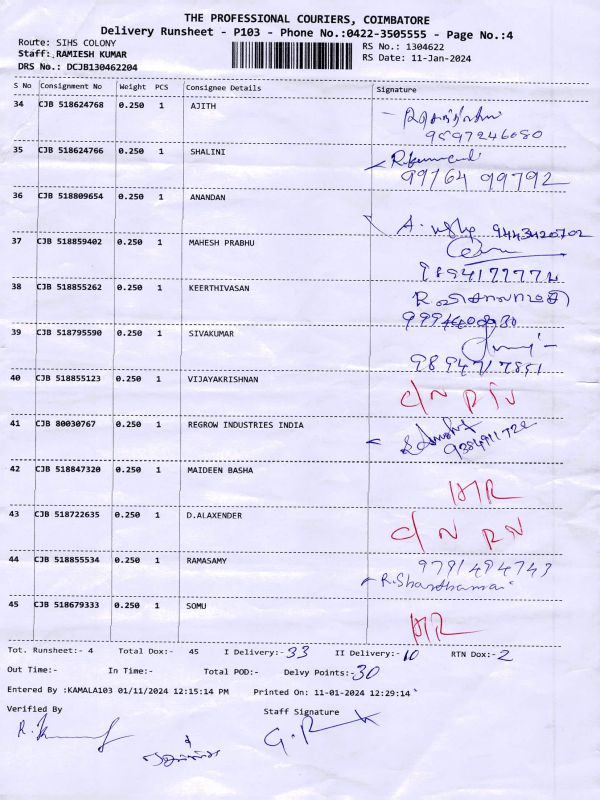 THE PROFESSIONAL COURIERS, COIMBATORE
Delivery Runsheet - P103 - Phone No.:0422-3505555 - Page No.:4
Route: SIHS COLONY
RS No.: 1304622
Staff: RAMIESH KUMAR
RS Date: 11-Jan-2024
DRS No.: DCJB130462204
S No Consignment No Weight PCS Consignee Details Signature
34 CJB 518624768 0.250 1 AJITH
9597246080
35 CJB 518624766 0.250 1 SHALINI
99764 99792
36 CJB 518809654 0.250 1 ANANDAN
9443420702
37 CJB 518859402 0.250 1 MAHESH PRABHU
38 CJB 518855262 0.250 1 KEERTHIVASAN
39 CJB 518795590 0.250 1 SIVAKUMAR
9894717891
40 CJB 518855123 0.250 1 VIJAYAKRISHNAN
41 CJB 80030767 0.250 1 REGROW INDUSTRIES INDIA
42 CJB 518847320 0.250 1 MAIDEEN BASHA
43 CJB 518722635 0.250 1 D.ALAXENDER
44 CJB 518855534 0.250 1 RAMASAMY
9791494743
45 CJB 518679333 0.250 1 SOMU
Tot. Runsheet:- 4 Total Dox:- 45 I Delivery:- 33 II Delivery:- 10 RTN Dox:- 2
Out Time:- In Time:- Total POD:- Delvy Points:- 30
Entered By :KAMALA103 01/11/2024 12:15:14 PM Printed On: 11-01-2024 12:29:14
Verified By Staff Signature